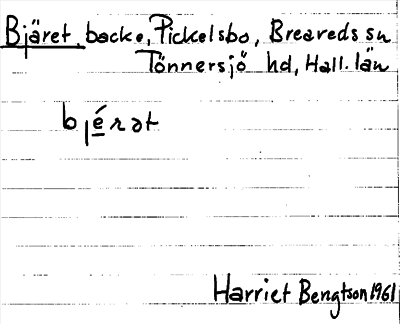 Bjäret, backe, Pickelsbo, Breareds sn
Tönnersjö hd, Hall. län
bjérət
Harriet Bengtson 1961